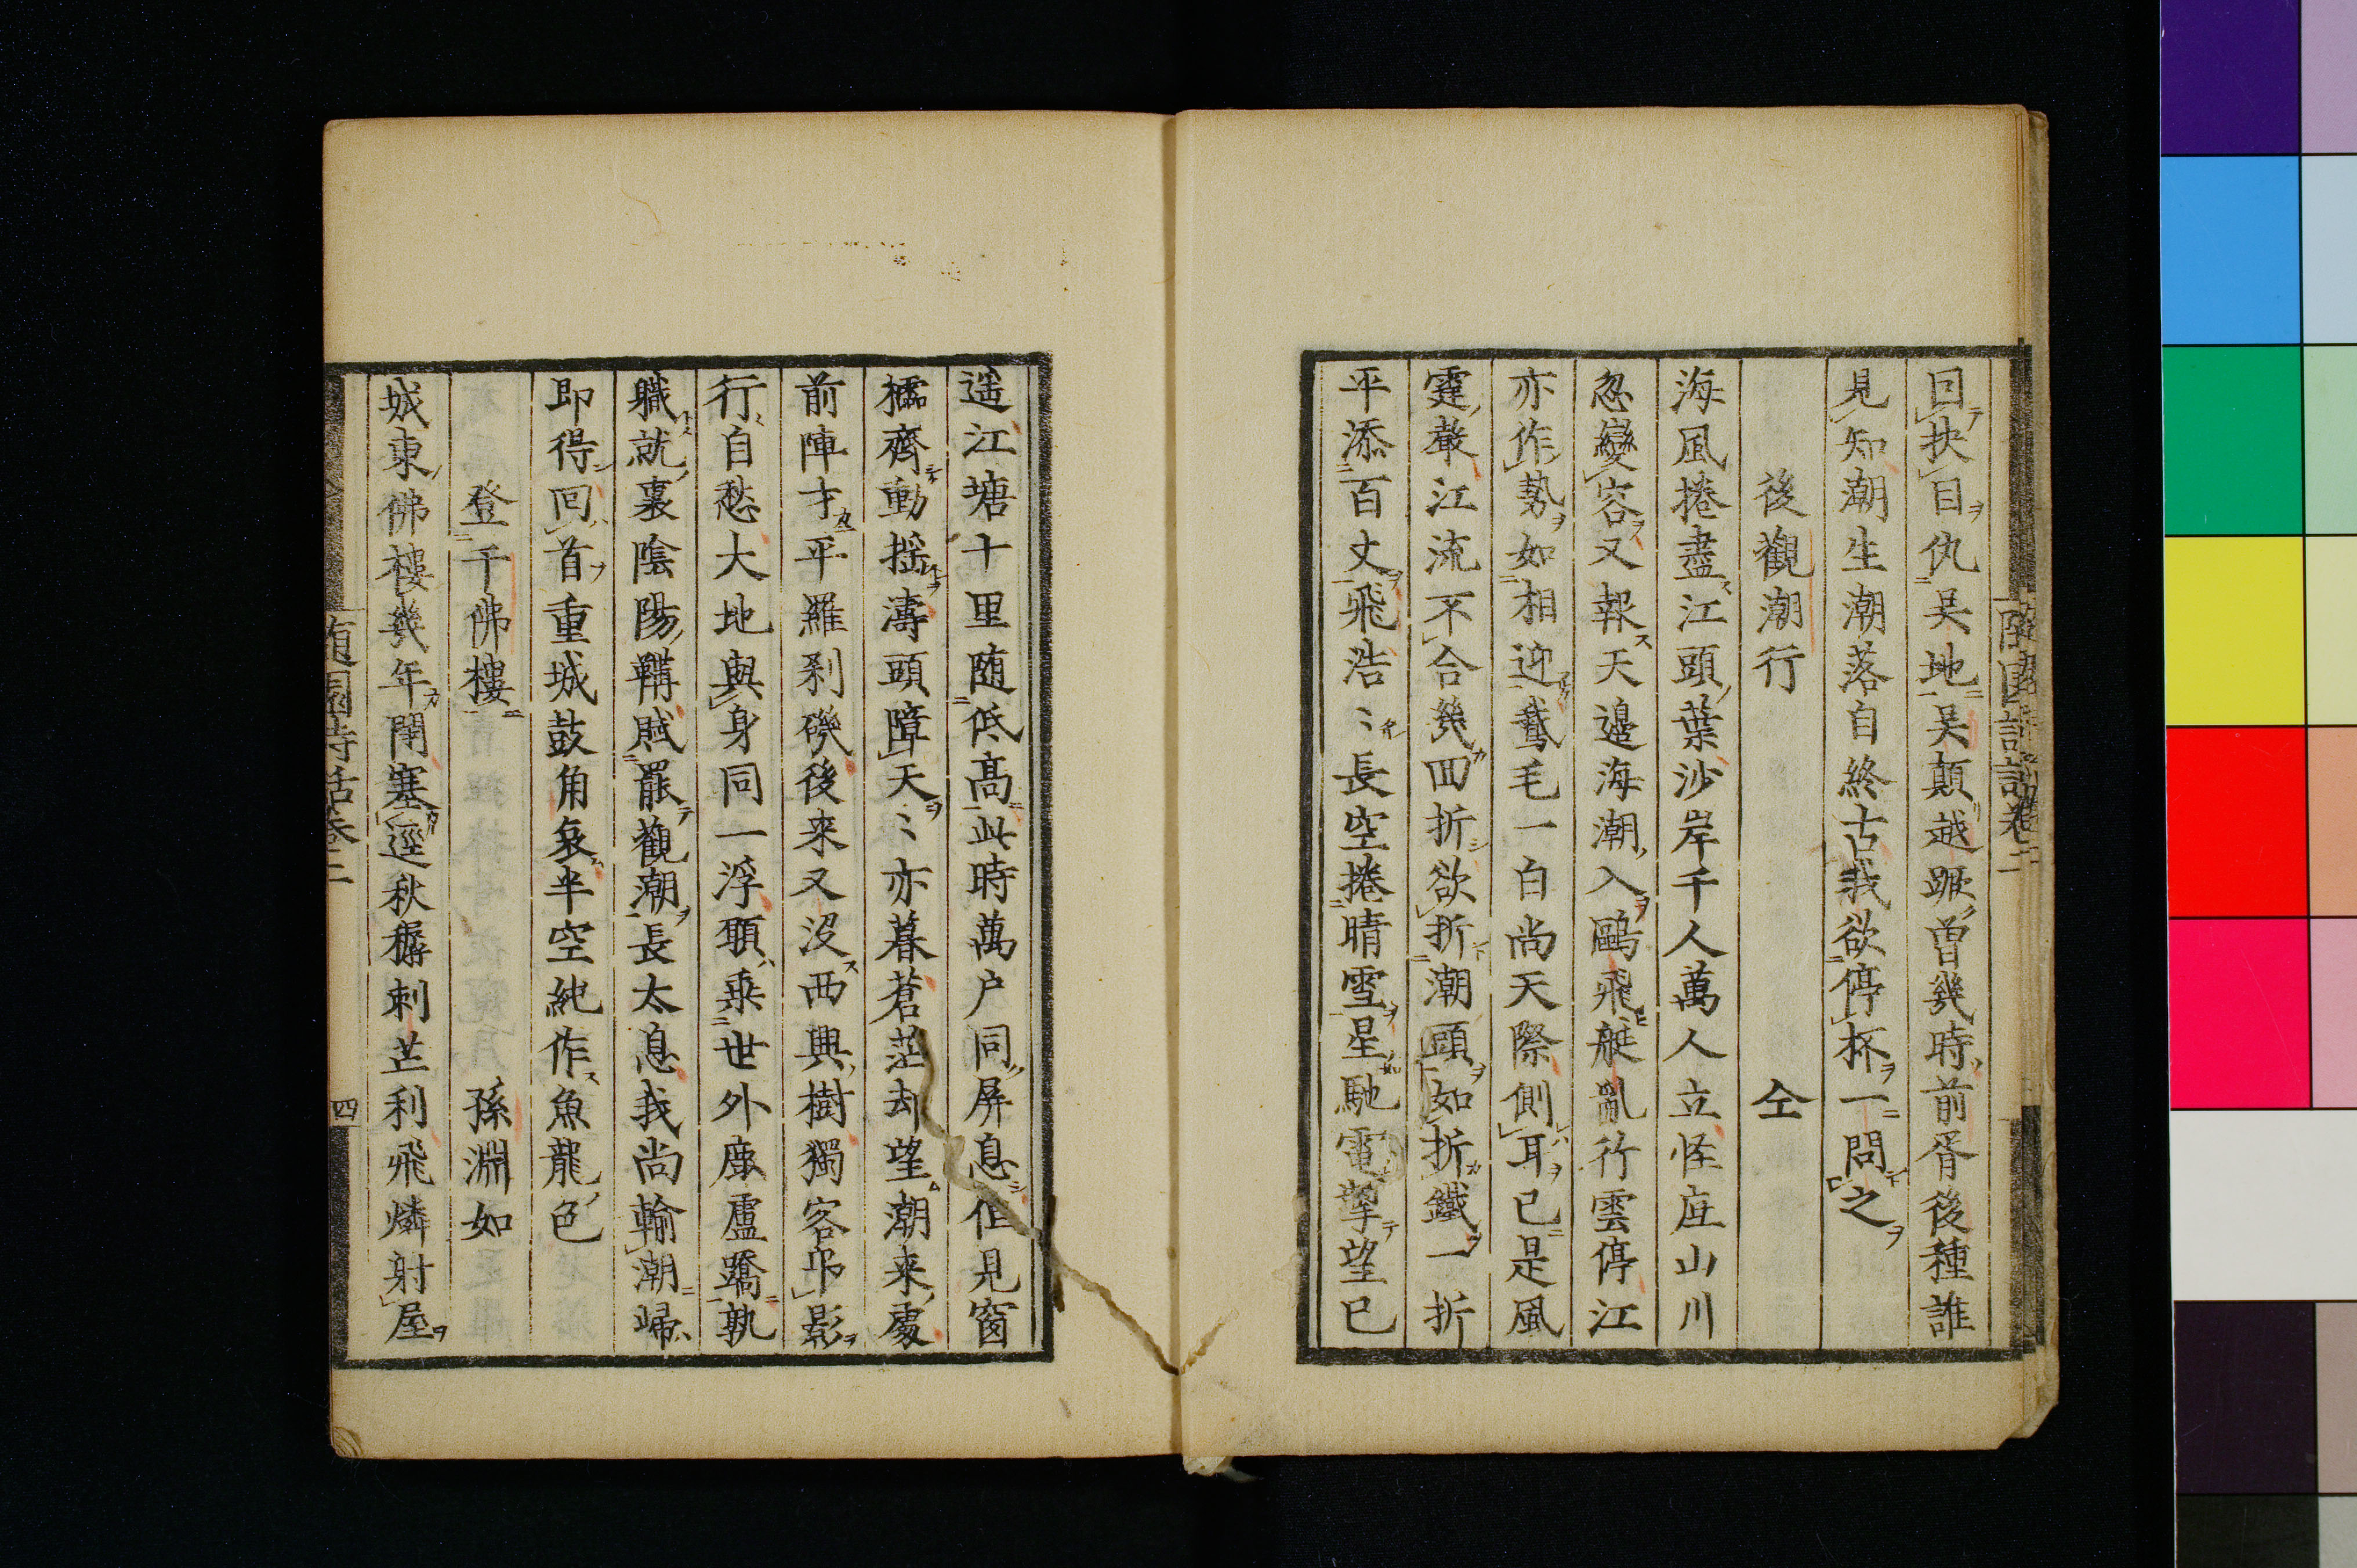 回抉目仇吳地吳顛越蹶曽幾時前胥後種誰
見知潮生潮落自終古我欲停杯一問之
後觀潮行　仝
海風捲盡江頭葉沙岸千人萬人立怪底山川
忽變容又報天邊海潮入鷗飛艇亂行雲停江
亦作勢如相迎鵞毛一白尚天際側耳已是風
霆聲江流不合幾回折欲折潮頭如折鐵一折
平添百丈飛浩〻長空捲晴雪星馳電掣望已
遥江塘十里随低髙此時萬户同屏息但見窗
櫺齊動揺濤頭障天〻亦暮蒼茫却望潮来處
前陣才平羅刹磯後来又没西興樹獨客弔影
行自愁大地與身同一浮願乗世外鹿盧蹻孰
職就裏陰陽韝賦罷觀潮長太息我尚輸潮歸
即得回首重城鼓角哀半空純作魚龍色
登千佛樓　孫淵如
城東佛樓幾年閉塞逕秋穉刺芒利飛燐射屋
随園詩話卷二
四